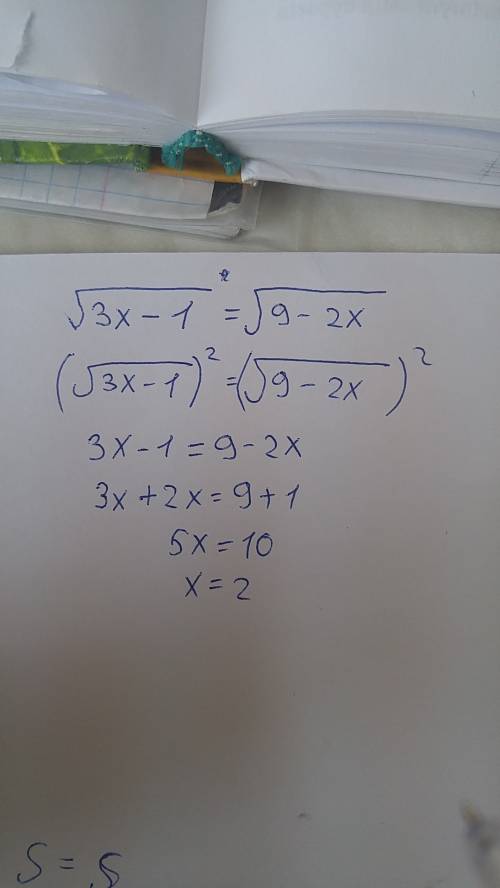 √3x-1 = √9-2x
(√3x-1)² = (√9-2x)²
3x-1=9-2x
3x+2x=9+1
5x=10
x=2
S=S